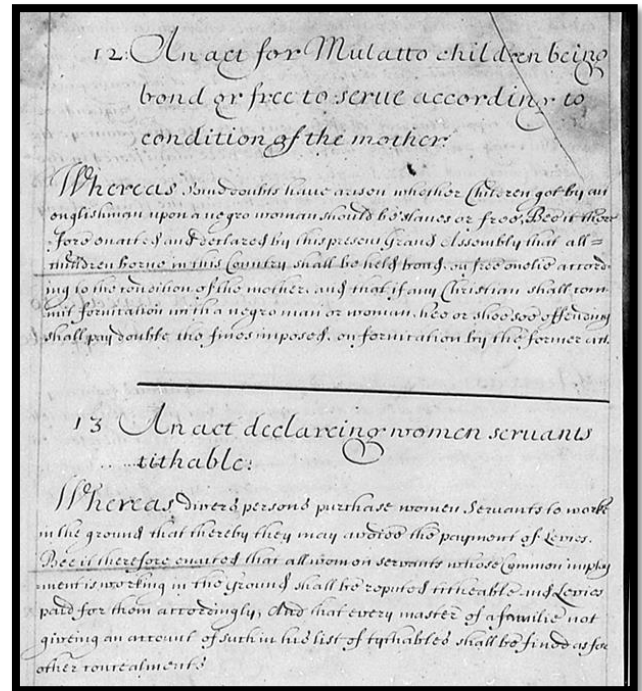 12. An act for Mulatto children being
bond or free to serve according to
condition of the mother.
Whereas some doubts have arisen whether Children got by an
englishman upon a negro woman should be slaves or free, Bee it there
fore enacted and declared by this present Grand Assembly that all =
children borne in this Country shall be held bond or free onelie accord=
ing to the condition of the mother, and that if any Christian shall com
mit fornication with a negro man or woman, hee or shee soe offending
shall pay double the fines imposed, on fornication by the former act.
13 An act declareing women servants
tithable:
Whereas divers persons purchase women Servants to worke
in the ground that thereby they may avoide the payment of Levies.
Bee it therefore enacted that all women servants whose Common imploy
ment is working in the ground shall be reputed titheable and Levies
paid for them accordingly, And that every master of a familie not
giveing an account of such in his list of tythables shall be fined as for
other concealments